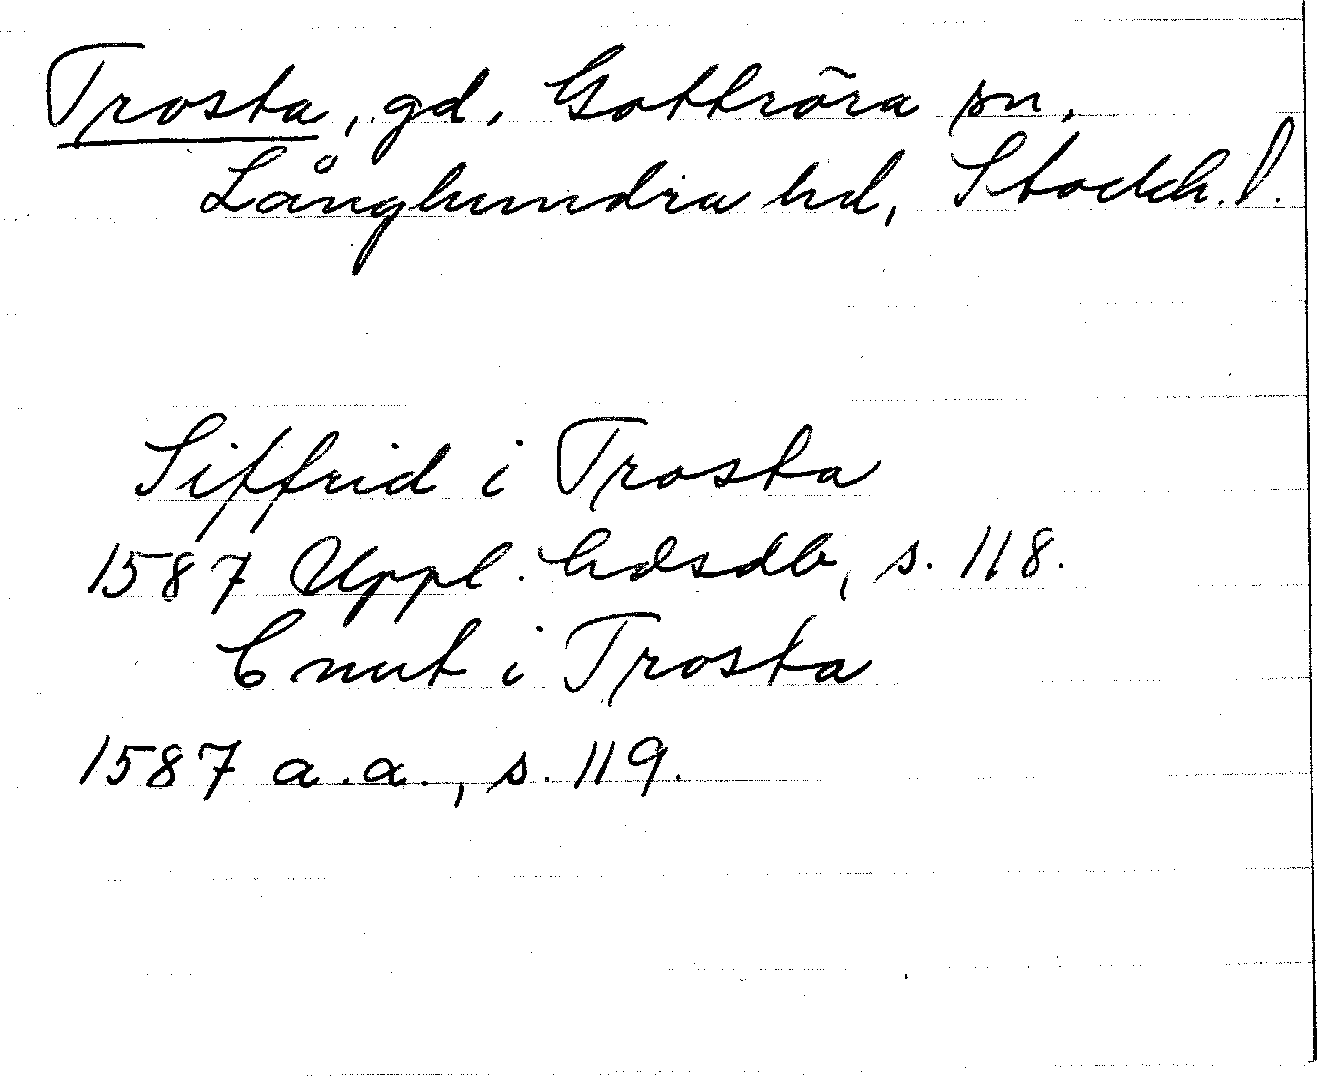 Trosta, gd, Gottröra sn,
Långhundra hd, Stockh. l.
Siffrid i Trosta
1587 Uppl. hdsdb, s. 118.
Cnut i Trosta
1587 a.a., s. 119.